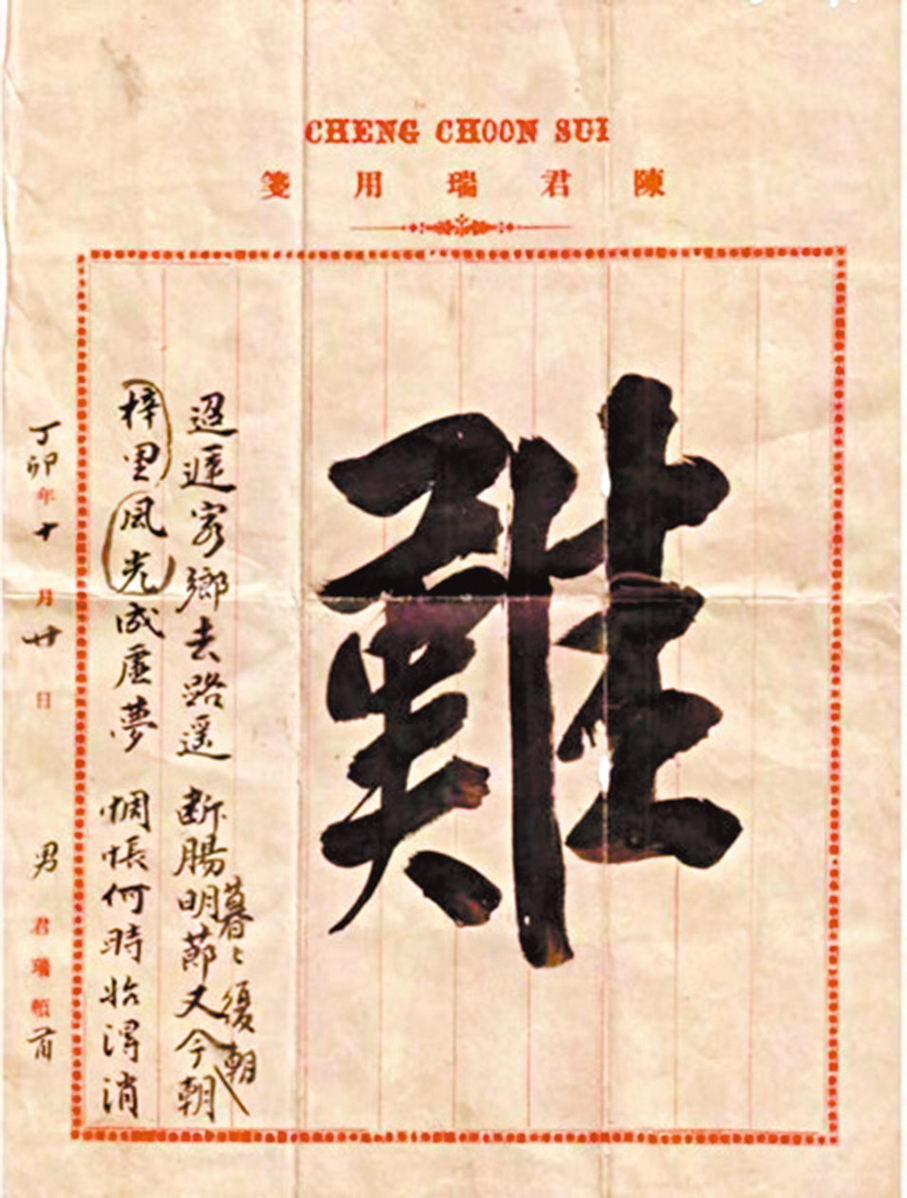 CHENG CHOON SUI
陳君瑞用箋
難
迢遞客鄉去路遥 断腸明莭又今朝
暮〻復朝
梓里風光成虛夢 惆悵何時始得消
丁卯年十月廿日 男 君瑞頓首